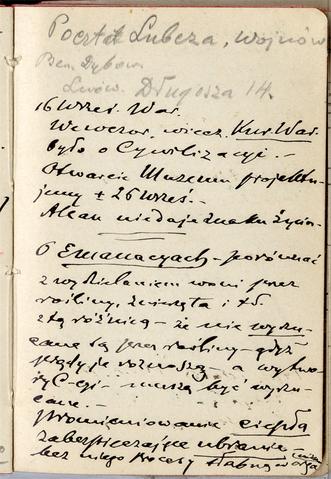 Poczta Lubcza, Wojnów
Ben. Dybow
Lwów. Długosza 14.
16 Wrześ. War.
Wczoraj, wiecz. Kur. War.
było o Cywilizacyi. —
Otwarcie Muzeum projektu-
jemy ± 26 Wrześ. —
Alcan nie daje znaku życia. —
O Emanacyach — porównać
z wydzielaniem woni przez
rośliny, zwierzęta i t d.
z tą różnicą — że nie wyrzu-
cane są przez rośliny — gdyż
prądy je roznoszą — a
muszą być wyrzu-
cane. —
Promieniowanie ciepła
zabezpieczające ubranie
bez niego procesy